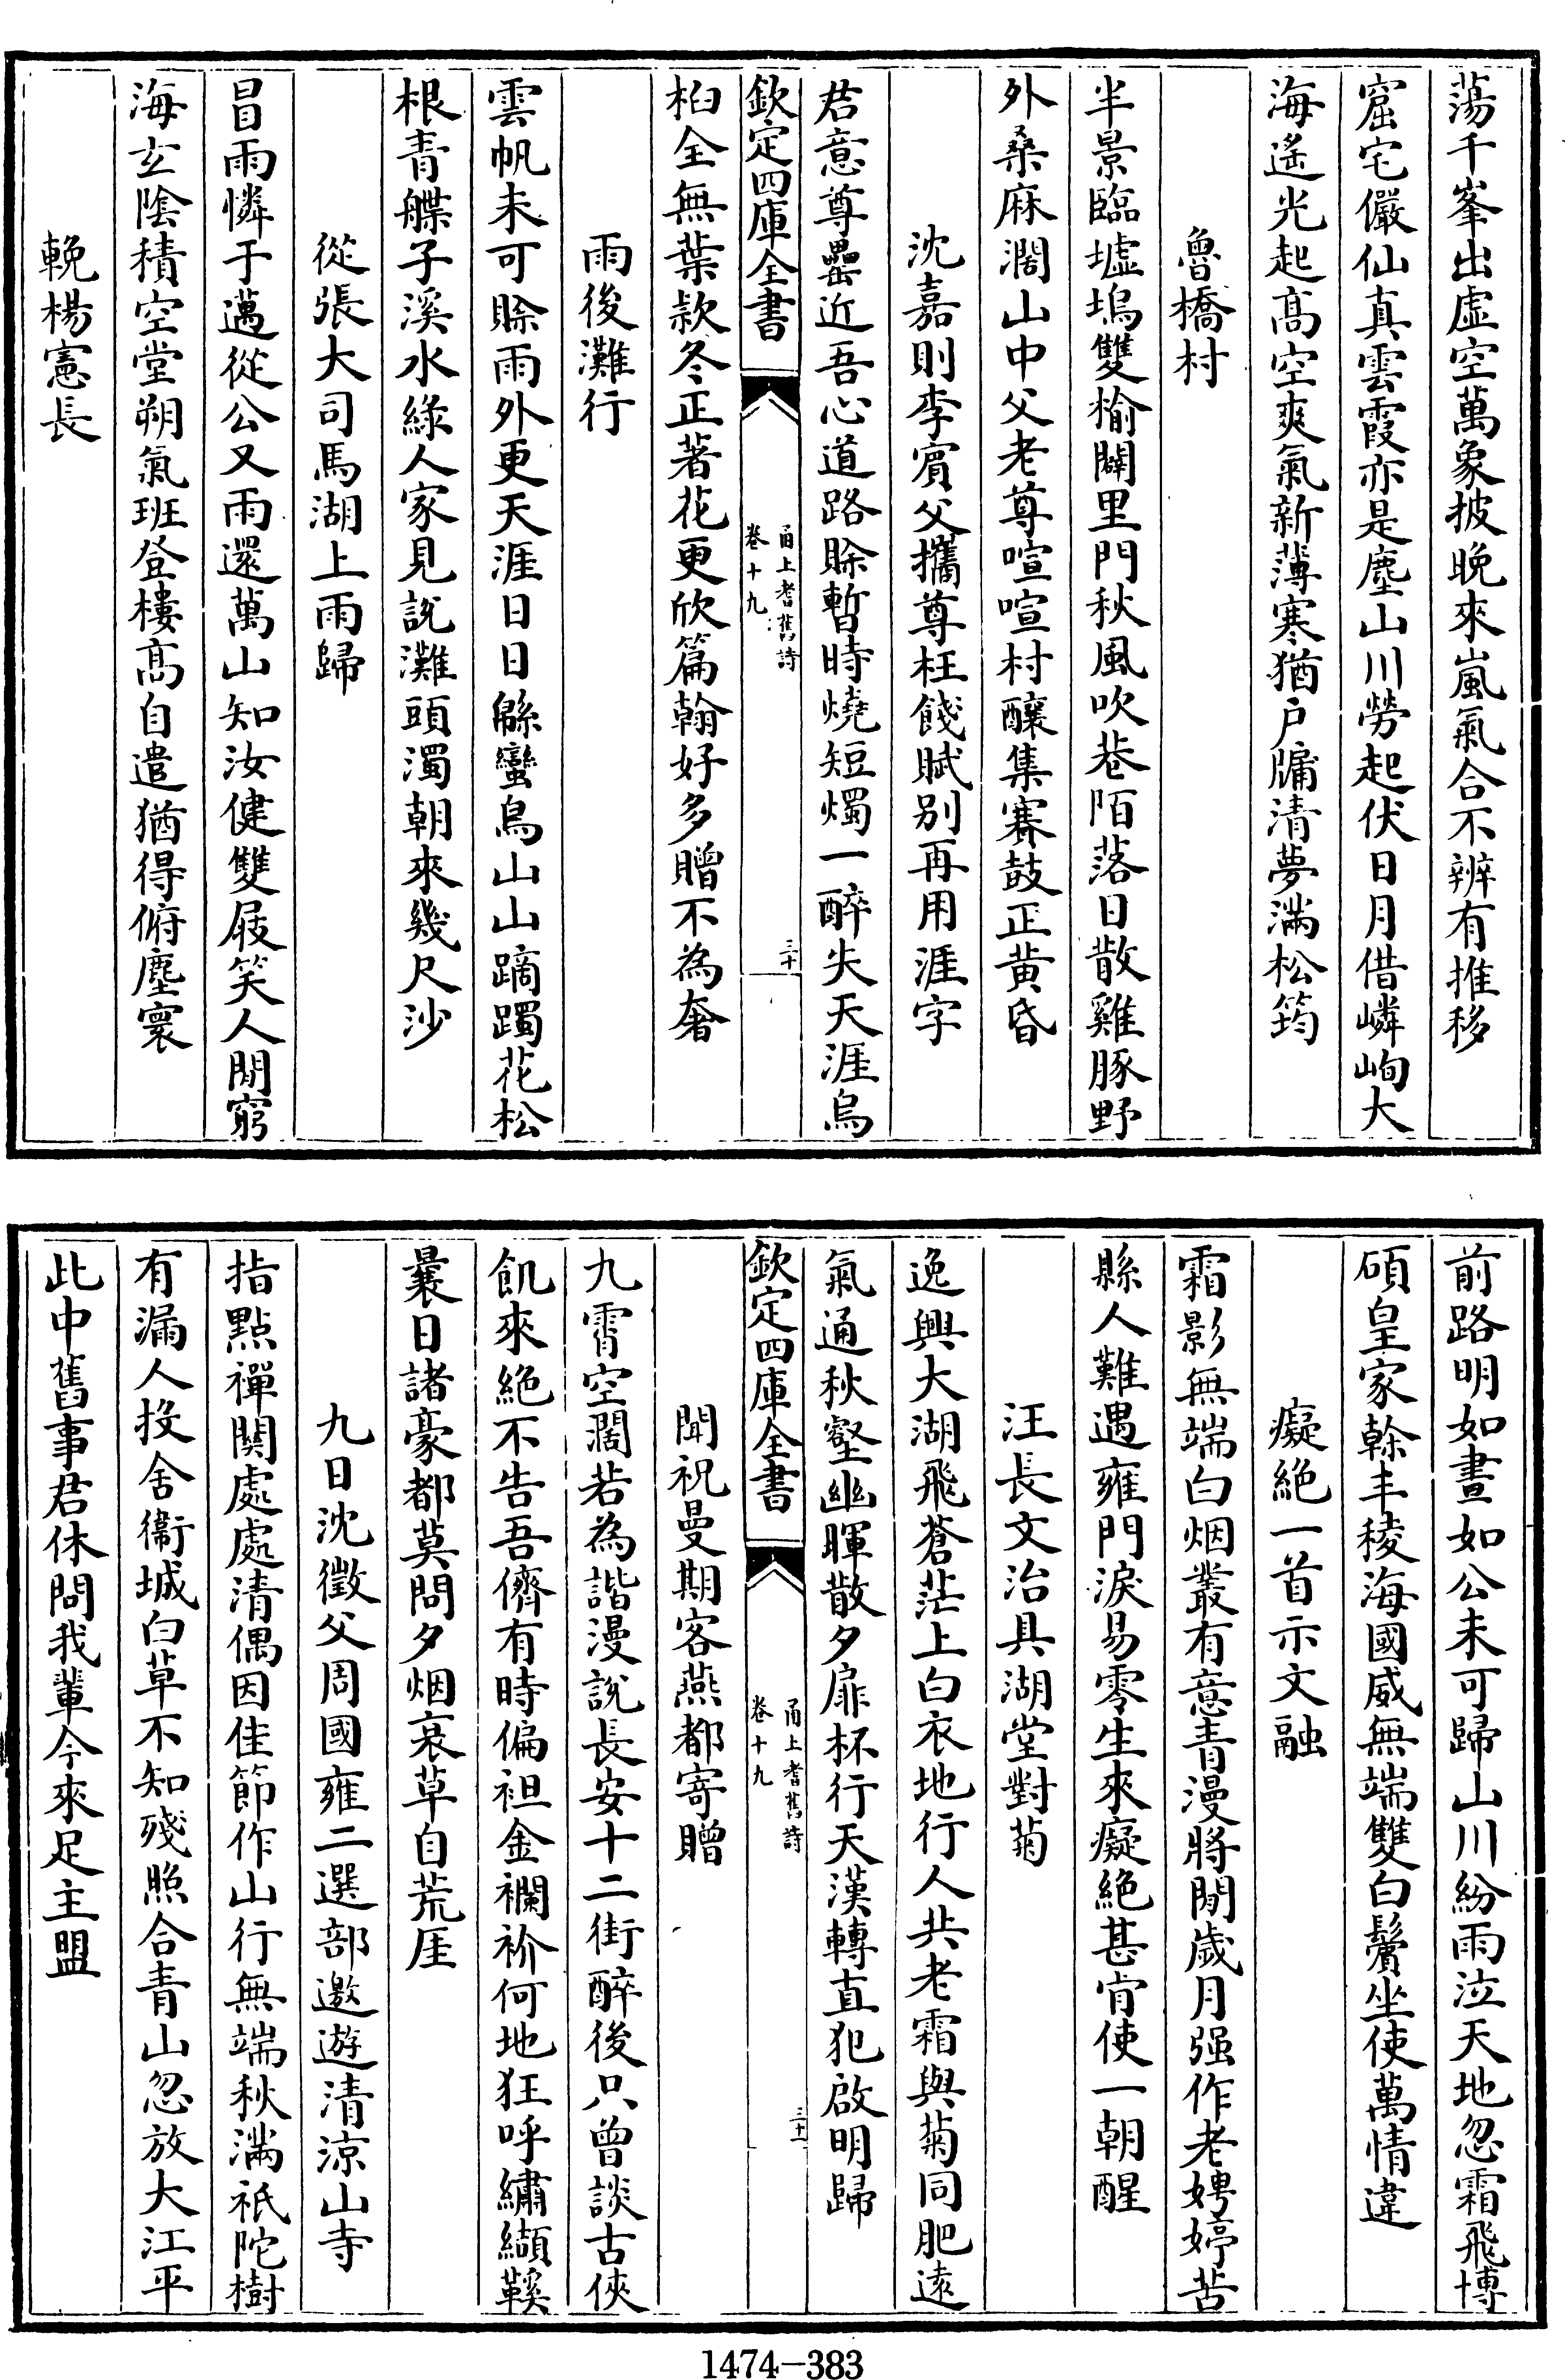 蕩千峯出虛空萬象披晚來嵐氣合不辨有推移
窟宅儼仙真雲霞亦是塵山川勞起伏日月借嶙峋大
海遙光起髙空爽氣新薄寒猶户牖清夢滿松筠
魯橋村
半景臨墟塢雙榆闢里門秋風吹巷陌落日散雞豚野
外桑麻濶山中父老尊喧喧村釀集賽鼓正黄昏
沈嘉則李賔父攜尊枉餞賦别再用涯字
君意尊罍近吾心道路賖暫時燒短燭一醉失天涯烏
欽定四庫全書
甬上耆舊詩
卷十九
三十
桕全無葉款冬正著花更欣篇翰好多贈不為奢
雨後灘行
雲帆未可賖雨外更天涯日日緜蠻鳥山山躑躅花松
根青艓子溪水綠人家見說灘頭濁朝來幾尺沙
從張大司馬湖上雨歸
冒雨憐于邁從公又雨還萬山知汝健雙屐笑人閒窮
海玄隂積空堂朔氣班登樓髙自遣猶得俯塵寰
輓楊憲長
前路明如晝如公未可歸山川紛雨泣天地忽霜飛博
碩皇家榦丰稜海國威無端雙白鬢坐使萬情違
癡絶一首示文融
霜影無端白烟叢有意青漫將閒歲月强作老娉婷苦
縣人難遇雍門淚易零生來癡絶甚肯使一朝醒
汪長文治具湖堂對菊
逸興大湖飛蒼茫上白衣地行人共老霜與菊同肥逺
氣通秋壑幽暉散夕扉杯行天漢轉直犯啟明歸
欽定四庫全書
甬上耆舊詩
卷十九
三十一
聞祝曼期客燕都寄贈
九霄空濶若為諧漫說長安十二街醉後只曾談古俠
飢來絶不告吾儕有時偏袒金襴衸何地狂呼繡纈鞵
曩日諸豪都莫問夕烟衰草自荒厓
九日沈徵父周國雍二選部邀遊清涼山寺
指點禪關處處清偶因佳節作山行無端秋滿祇陀樹
有漏人投舍衛城白草不知殘照合青山忽放大江平
此中舊事君休問我輩今來足主盟
1474-383